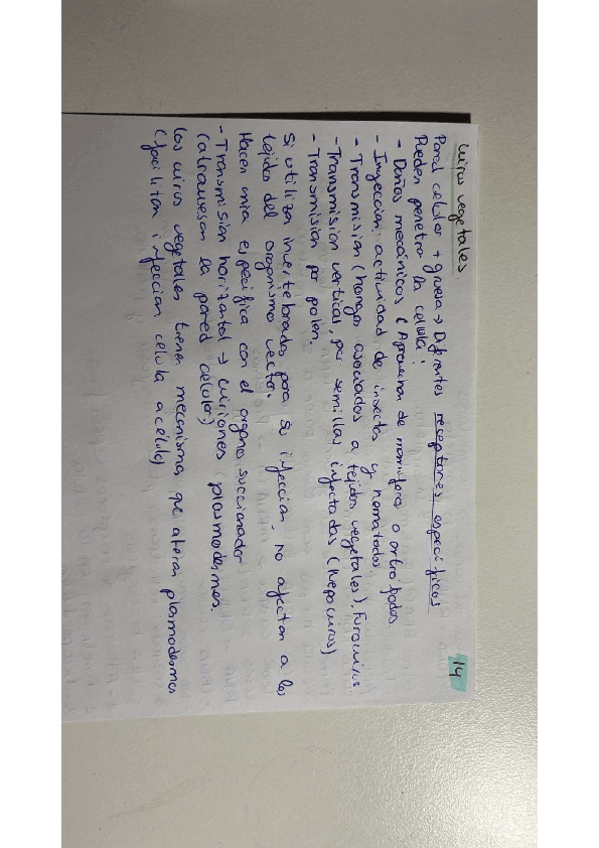 14
Virus vegetales.
Pared celular + gruesa → Diferentes receptores específicos
Pueden penetrar la célula:
- Daños mecánicos ( Aparición de mamíferos o artrópodos
- Inyección: actividad de insectos y nematodos
- Transmisión (hongos asociados a tejidos vegetales). Furovirus
- Transmisión vertical, por semillas infectadas (Nepovirus)
- Transmisión por polen.
Si utiliza invertebrados para su infección, no afectan a los
tejidos del organismo vector.
Hacen unia específica con el órgano succionador
- Transmisión horizontal → viriones plasmodesmos.
(atraviesan la pared celular)
los virus vegetales tienen mecanismos que alteran plasmodesmos
(facilitan infección célula a célula)